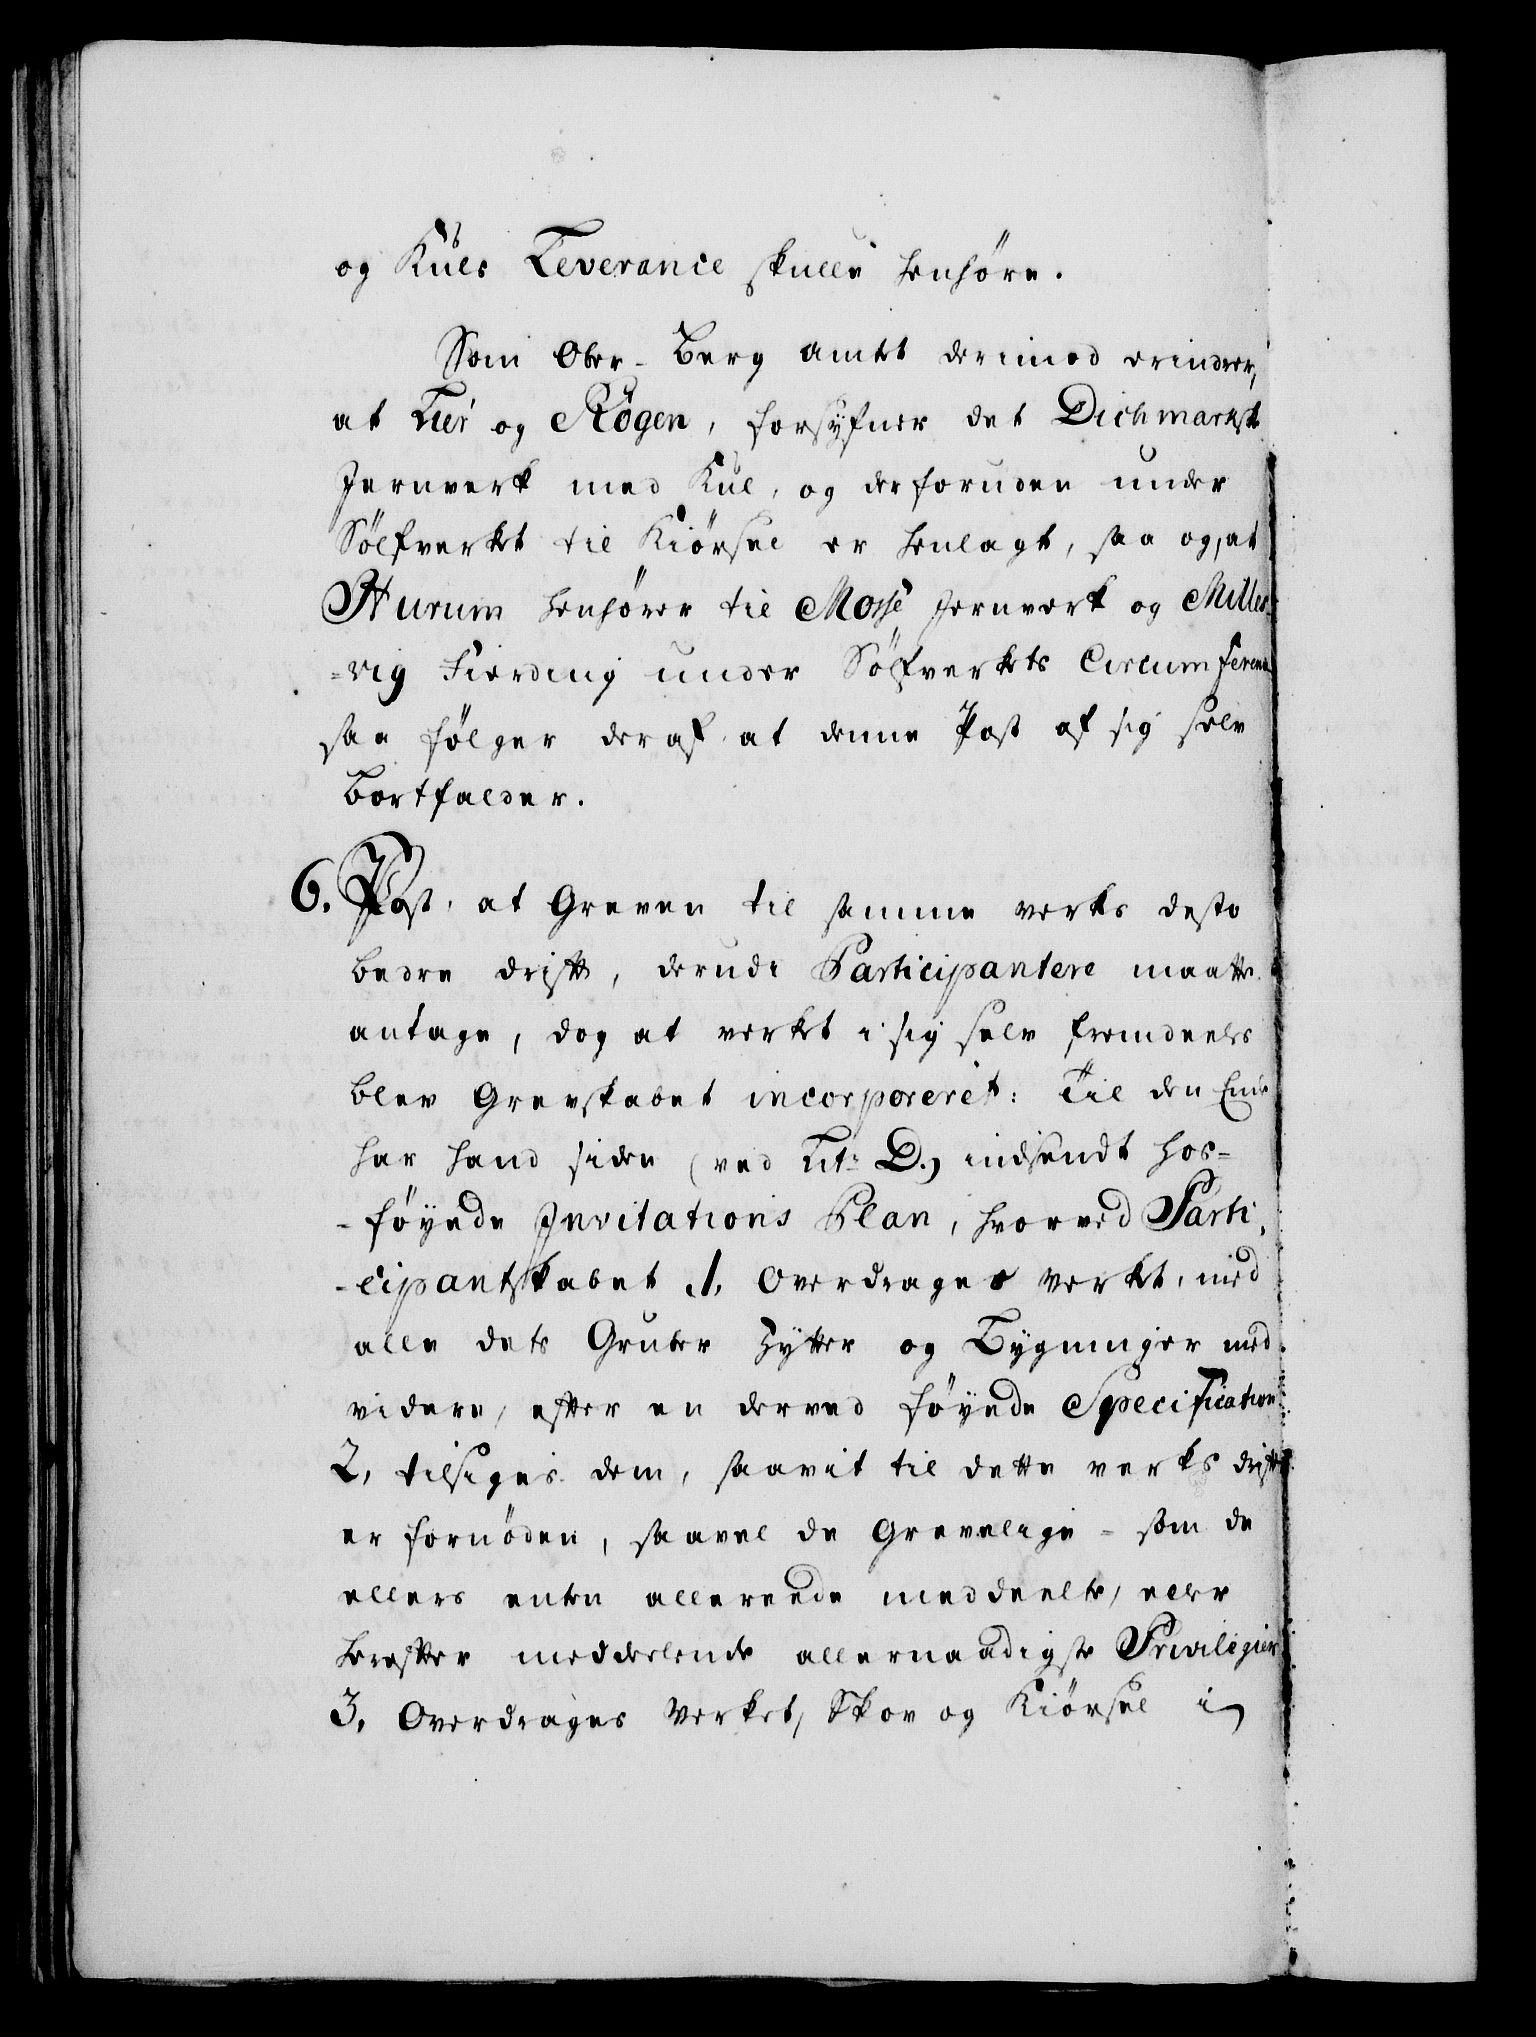 og Kuls Leverance skulle henhøre.
Som Ober-Berg amtet derimod erindrer,
at Lier og Røgen, forsÿfner det Dichmarkske
Jernverk med Kul, og desforuden under
Sølfverket til Kiørsel er henlagt, saa og, at
Hurum henhører til Mosse Jernverk og Miller-
-vig Fierding under Sølfverkets Circumference
saa følger deraf at denne Post af sig selv
bortfalder.
6. Post, at Greven til samme verks desto
bedre drift, derudi Participantere maatte
antage, dog at verket i sig selv fremdeeles
blev Grevskabet incorporeret: Til den Ende
har hand siden (ved Litr D.) indsendt hos-
-føÿede Invitations Plan, hvorved Parti-
-cipantskabet 1, Overdrages verket, med
alle dets Gruber Hytter og Bÿgninger med
videre, efter en derved føÿede Specification
2, tilsiges dem, saavit til dette verks drift
er fornøden, saavel de Grevelige - som de
ellers enten allereede meddeelte, eller
herefter meddeelende allernaadigste Privilegier
3, Overdrages Verket, Skov og Kiørsel i